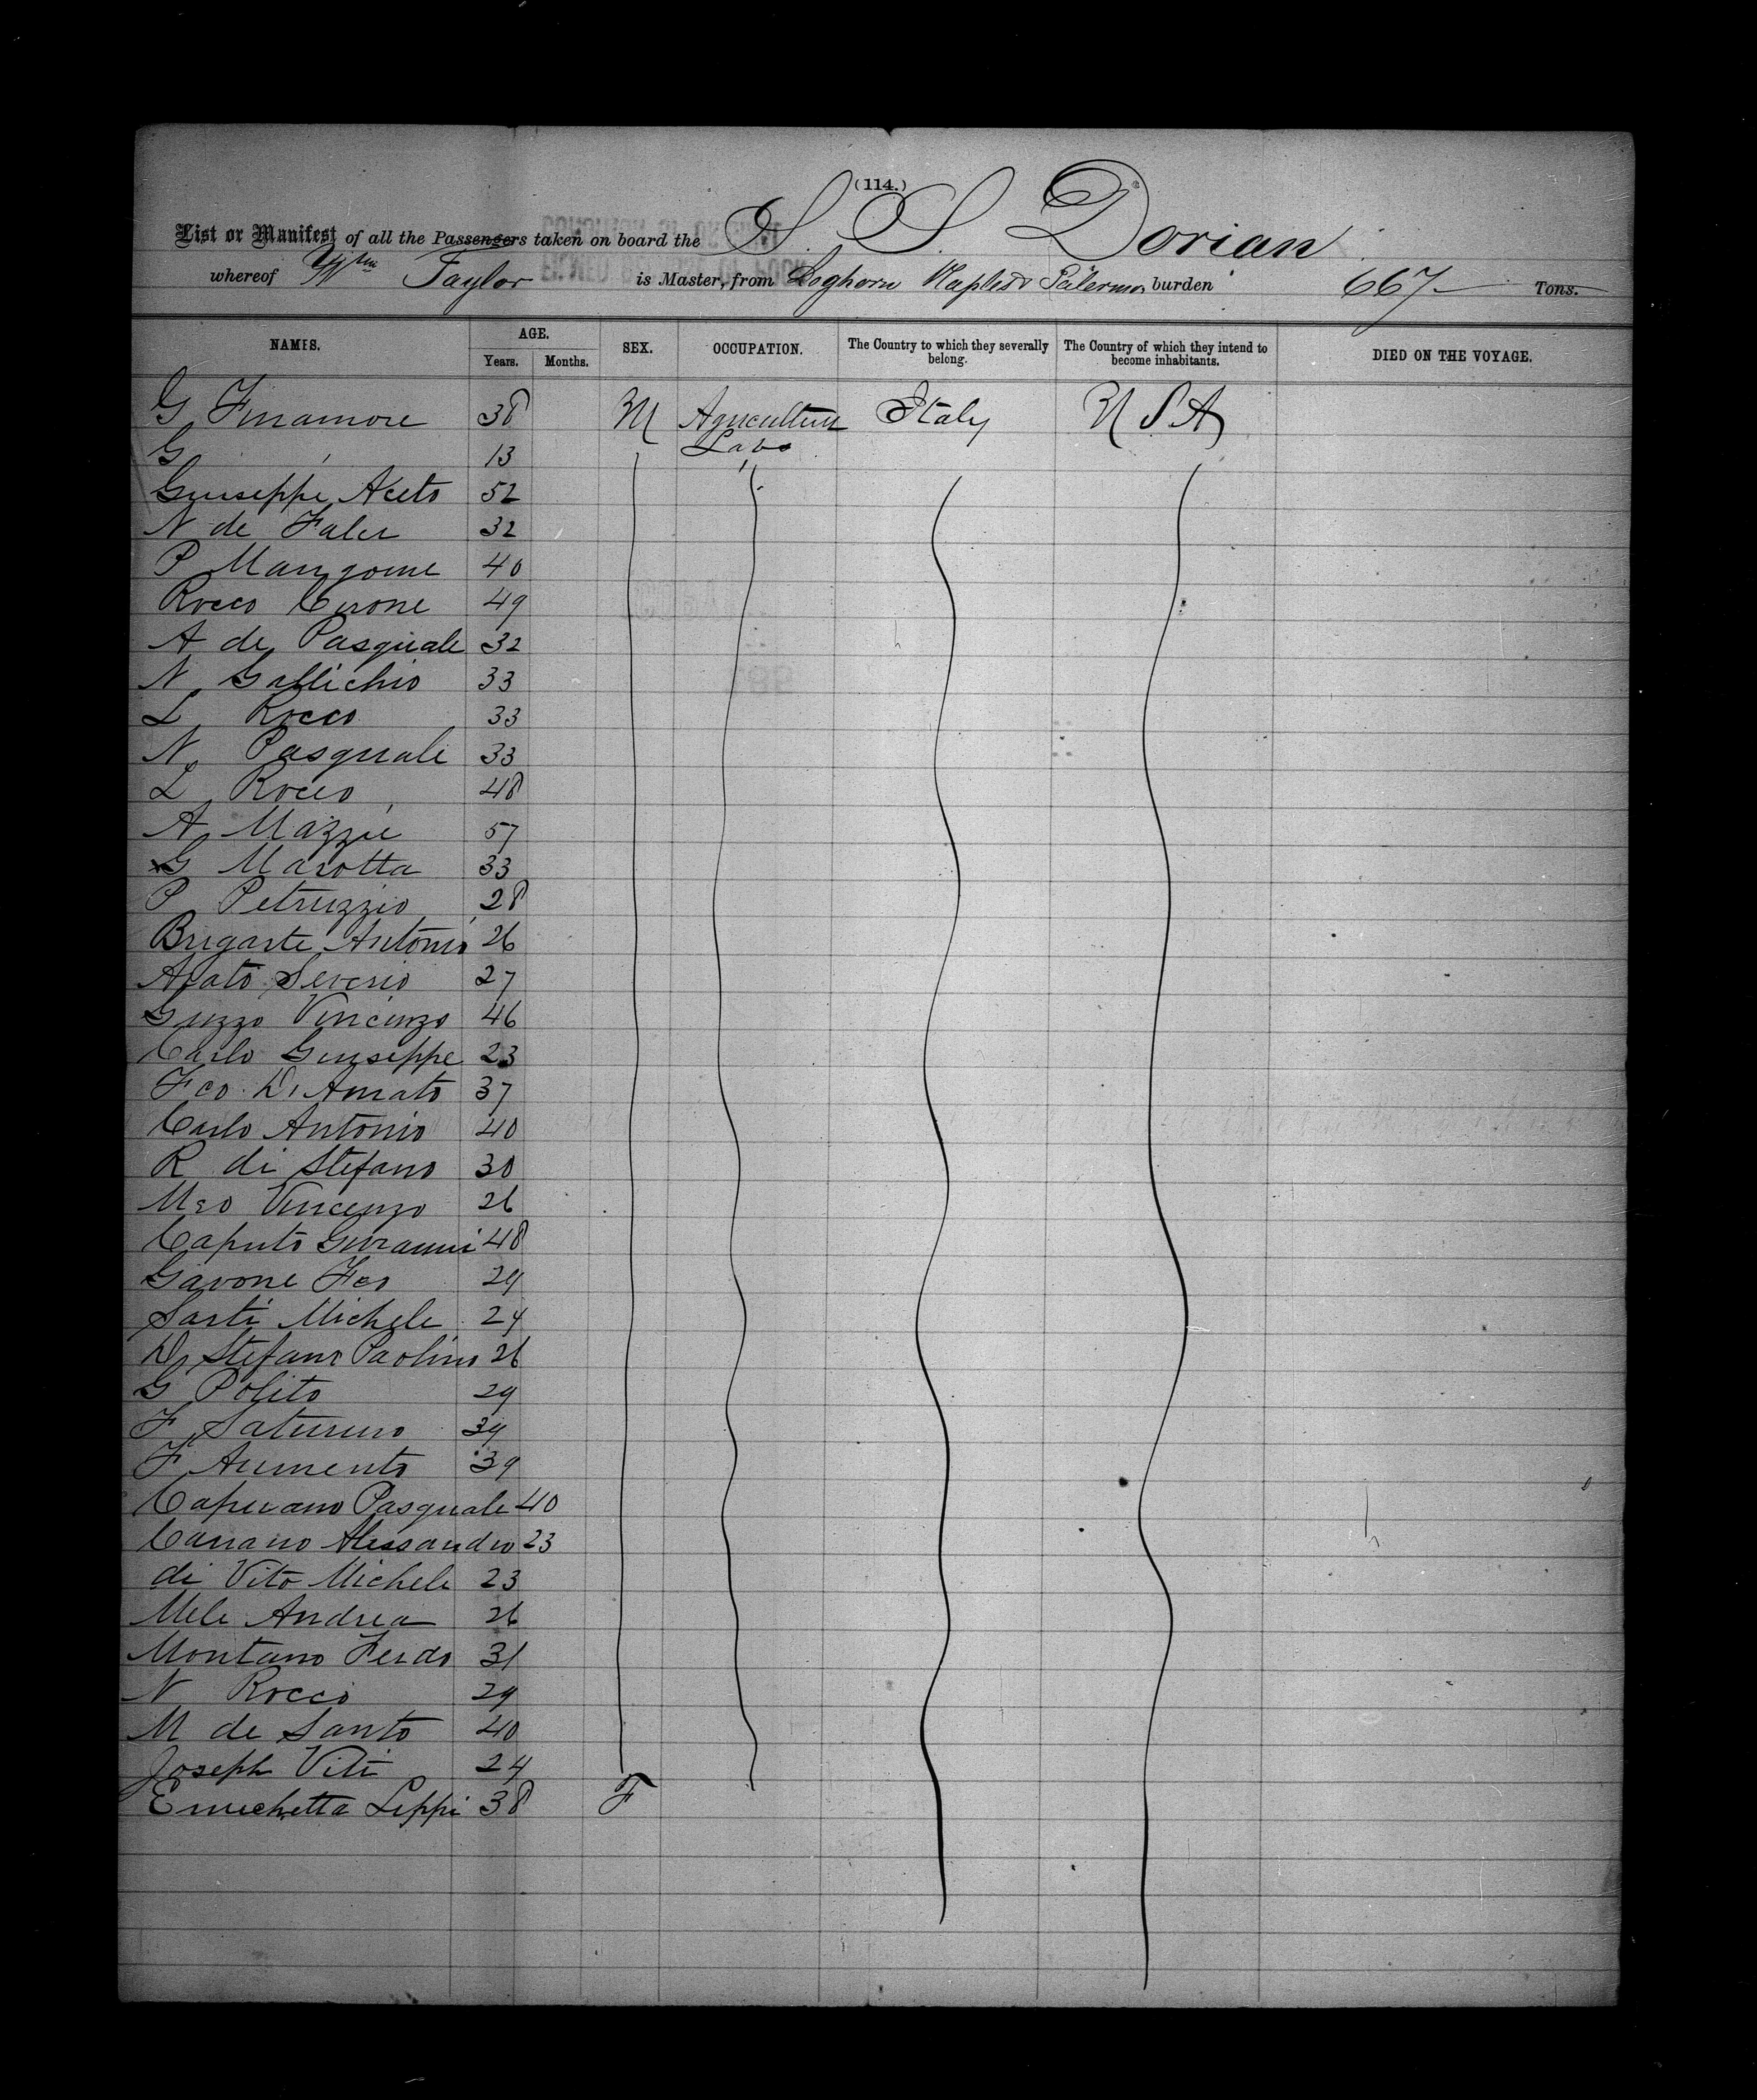 (114.)
List or Manifest of all the Passengers taken on board the S. S. Dorian
whereof Wm Taylor is Master, from Leghorn Naples & Palermo burden 667 Tons.
NAMES. AGE. SEX. OCCUPATION. The Country to which they severally belong. The Country of which they intend to become inhabitants. DIED ON THE VOYAGE.
Years. Months.
G Finamore 38 M Agriculture Italy U S A
Labo
G 13
Giuseppe Aceto 52
N de Faler 32
P Mangone 40
Rocco Cirone 49
A de Pasquale 32
N Gallichio 33
L Rocco 33
N Pasquale 33
L Rocco 48
A Mazzie 57
G Marotta 33
P Petruzzio 28
Brigante Antonio 26
Severio 27
Guzzo Vincenzo 46
Carlo Giuseppe 23
Fco Di Amato 37
Carlo Antonio 40
R di Stefano 30
Meo Vincenzo 26
Caputo Giovanni 48
Gavone Fco 29
Sarti Michele 24
Di Stefano Paolino 26
G Polito 29
F Saturno 39
F Aumento 39
Capuano Pasquale 40
Carrano Alessandro 23
di Vito Michele 23
Mele Andrea 26
Montano Ferdo 31
N Rocco 29
M de Santo 40
Joseph Viti 24
Enrichetta Lippi 38 F